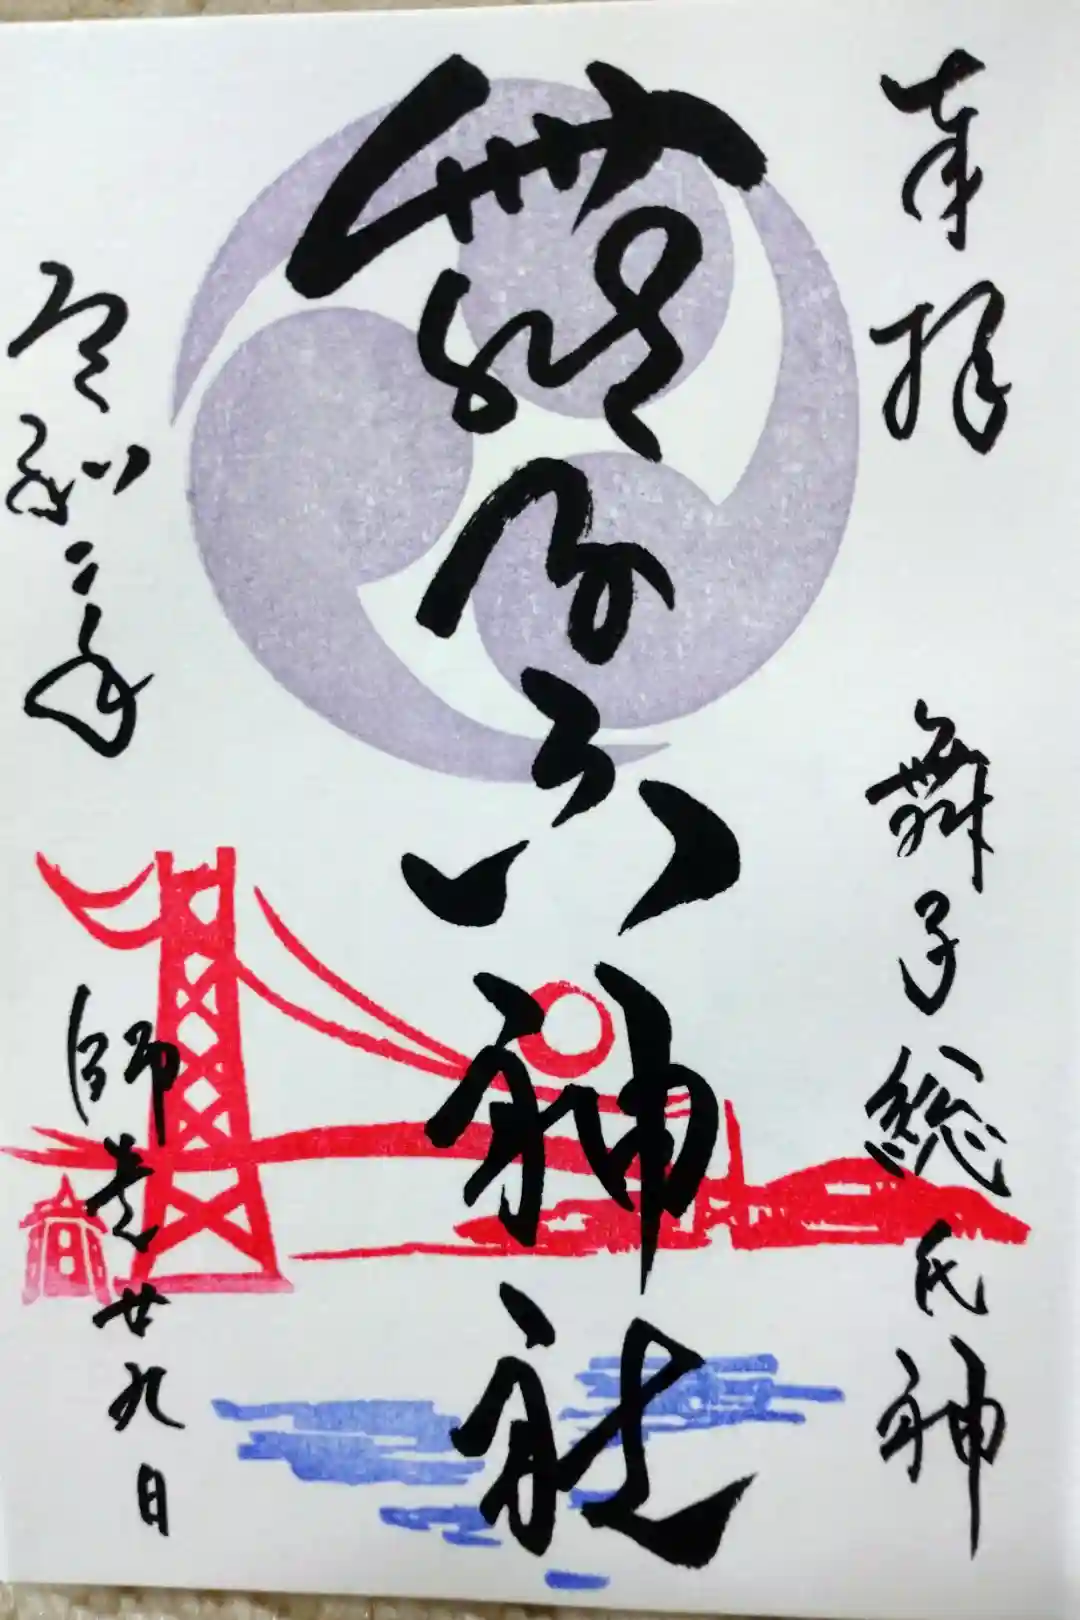 奉拝
舞子総氏神
舞子六神社
令和二年
師走廿九日